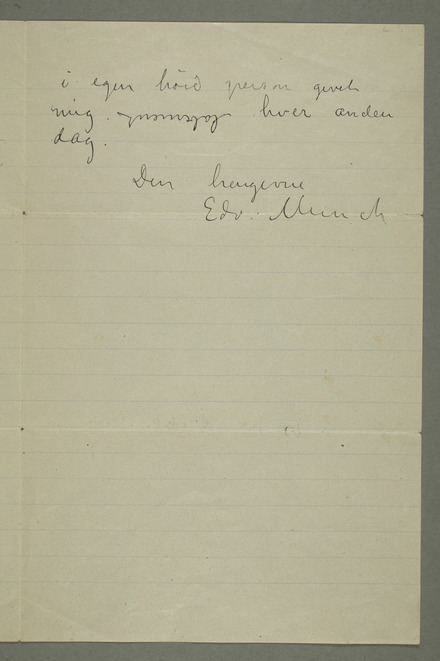 i egen höid person givet
mig hver anden
dag.
Din hengivne
Edv. Munch